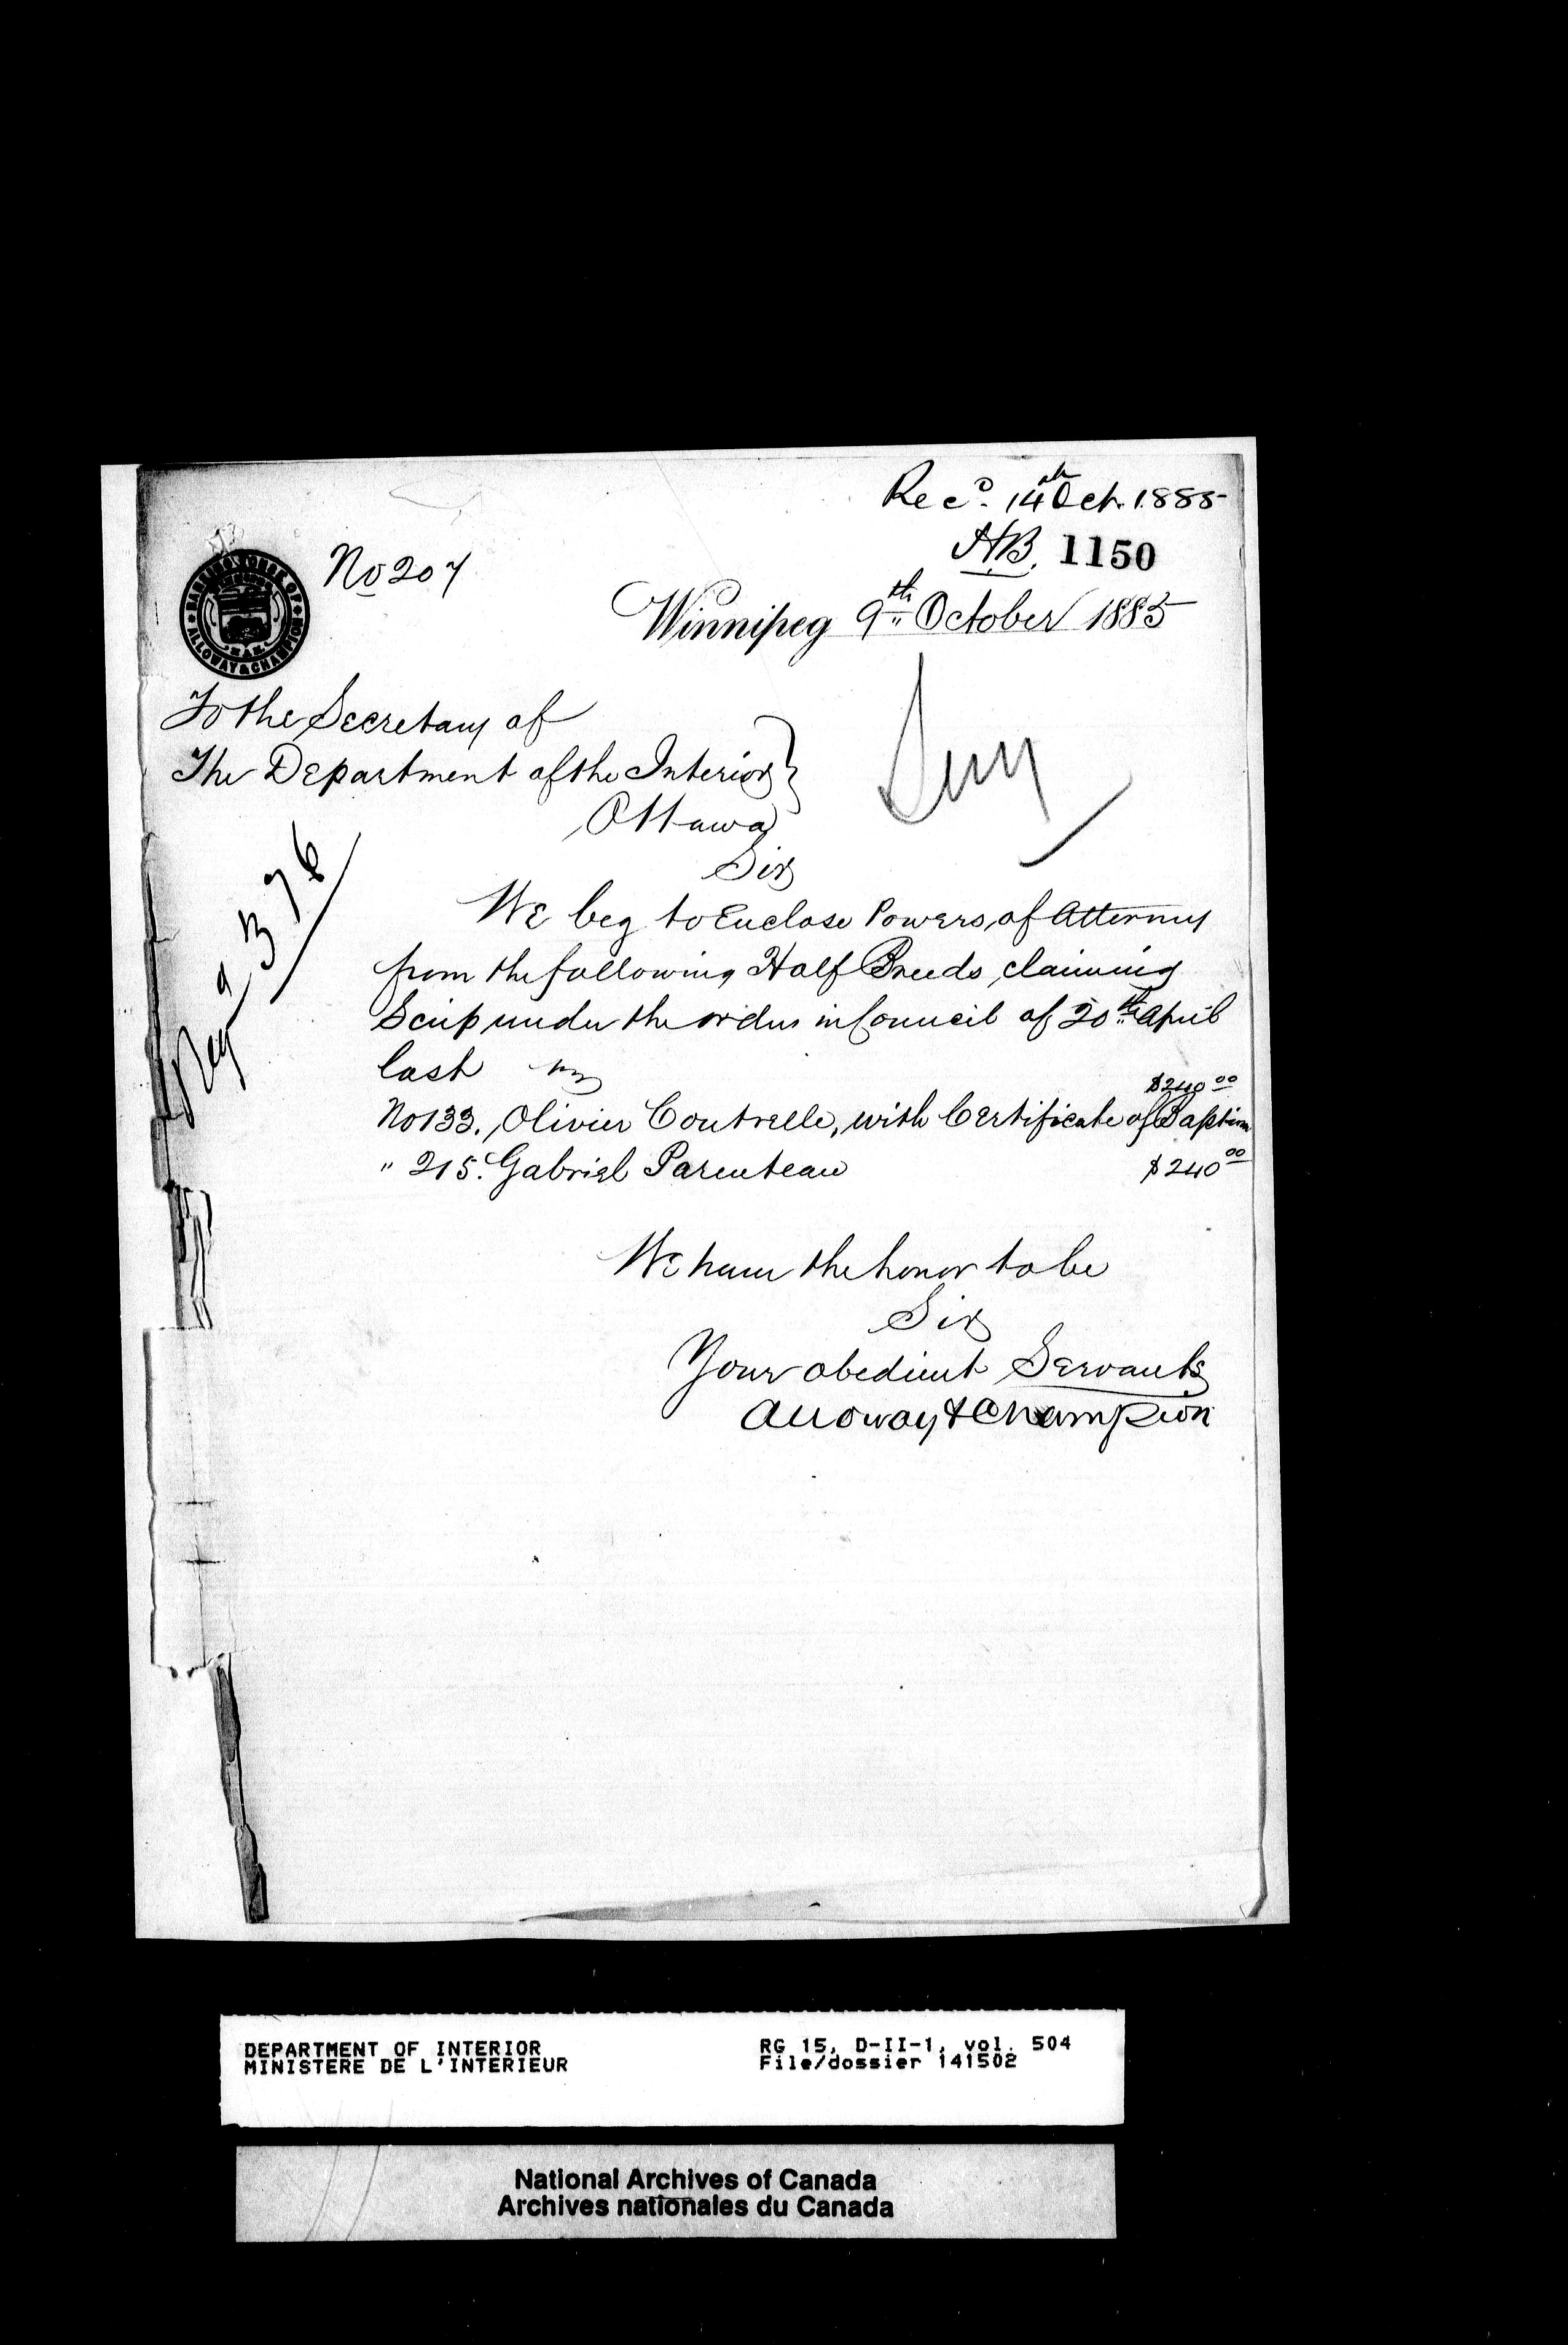 Rec^d. 14th Oct. 1885
H.B. 1150
No 207
BANKING HOUSE OF
ALLOWAY & CHAMPION
Winnipeg 9th October 1885
To the Secretary of
The Department of the Interior
Ottawa
Sir
We beg to Enclose Powers of Attorney
from the following Half Breeds, claiming
Scrip under the order in Council of 20th April
last
$240 00
No 133. Olivier Coutrelle, with Certificate of Baptism
" 215. Gabriel Parenteau $240 00
We have the honor to be
Sir
Your obedient Servants
Alloway & Champion
DEPARTMENT OF INTERIOR
MINISTERE DE L'INTERIEUR
RG 15, D-II-1, vol. 504
File/dossier 141502
National Archives of Canada
Archives nationales du Canada